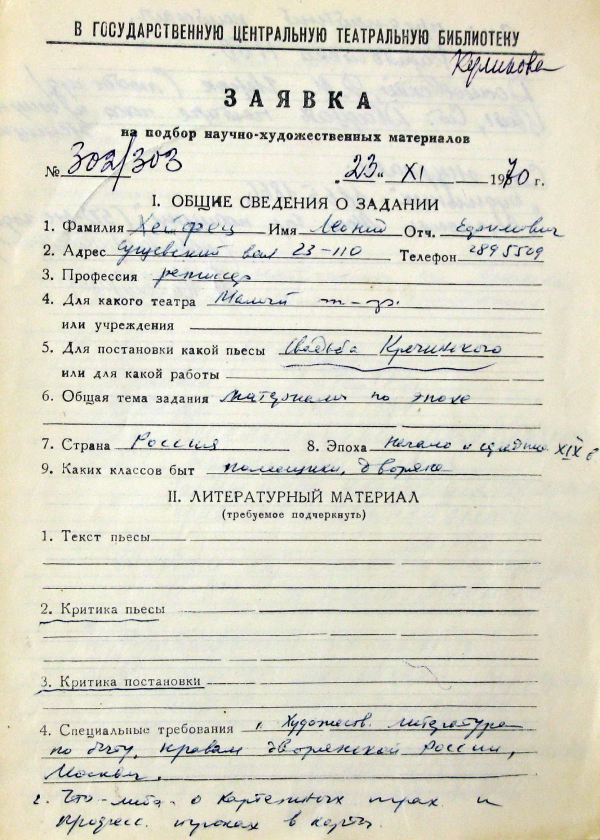 В ГОСУДАРСТВЕННУЮ ЦЕНТРАЛЬНУЮ ТЕАТРАЛЬНУЮ БИБЛИОТЕКУ
Куликова
ЗАЯВКА
на подбор научно-художественных материалов
№ 302/303 „23" XI 1970 г.
I. ОБЩИЕ СВЕДЕНИЯ О ЗАДАНИИ
1. Фамилия Хейфец Имя Леонид Отч. Ефимович
2. Адрес Сущевский вал 23-110 Телефон 2895529
3. Профессия режиссер
4. Для какого театра Малый т-р.
или учреждения
5. Для постановки какой пьесы Свадьба Кречинского
или для какой работы
6. Общая тема задания материалы по эпохе
7. Страна Россия 8. Эпоха начало и середина XIX в
9. Каких классов быт помещики, дворяне
II. ЛИТЕРАТУРНЫЙ МАТЕРИАЛ
(требуемое подчеркнуть)
1. Текст пьесы
2. Критика пьесы
3. Критика постановки
4. Специальные требования 1. Художеств. литература
по быту, нравам дворянской России,
Москвы.
2. Что-либо о картежных играх и
професс. игроках в карты.